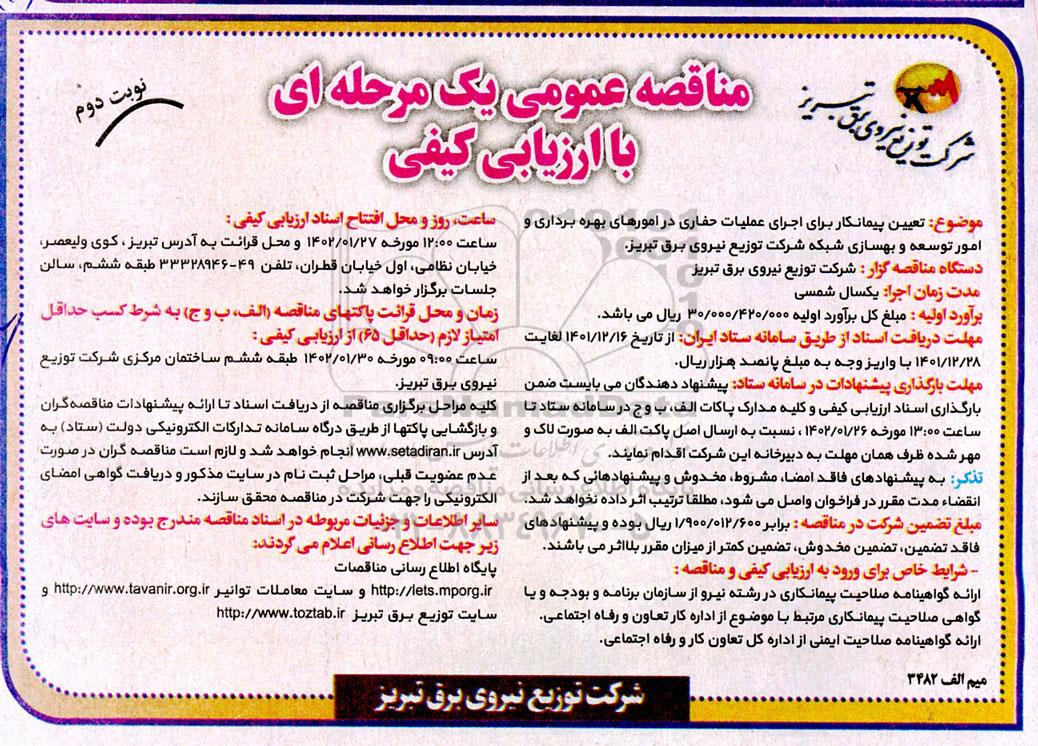 شرکت توزیع نیروی برق تبریز
مناقصه عمومی یک مرحله ای
با ارزیابی کیفی
نوبت دوم
موضوع: تعیین پیمانکار برای اجرای عملیات حفاری در امورهای بهره برداری و
امور توسعه و بهسازی شبکه شرکت توزیع نیروی برق تبریز.
دستگاه مناقصه گزار : شرکت توزیع نیروی برق تبریز
مدت زمان اجرا: یکسال شمسی
برآورد اولیه : مبلغ کل برآورد اولیه ۳۰/۰۰۰/۴۲۰/۰۰۰ ریال می باشد.
مهلت دریافت اسناد از طریق سامانه ستاد ایران: از تاریخ ۱۴۰۱/۱۲/۱۶ لغایت
۱۴۰۱/۱۲/۲۸ با واریز وجه به مبلغ پانصد هزار ریال.
مهلت بارگذاری پیشنهادات در سامانه ستاد: پیشنهاد دهندگان می بایست ضمن
بارگذاری اسناد ارزیابی کیفی و کلیه مدارک پاکات الف، ب و ج در سامانه ستاد تا
ساعت ۱۳:۰۰ مورخه ۱۴۰۲/۰۱/۲۶ ، نسبت به ارسال اصل پاکت الف به صورت لاک و
مهر شده ظرف همان مهلت به دبیرخانه این شرکت اقدام نمایند.
تذکر: به پیشنهادهای فاقد امضا، مشروط، مخدوش و پیشنهادهائی که بعد از
انقضاء مدت مقرر در فراخوان واصل می شود، مطلقاً ترتیب اثر داده نخواهد شد.
مبلغ تضمین شرکت در مناقصه : برابر ۱/۹۰۰/۰۱۲/۶۰۰ ریال بوده و پیشنهادهای
فاقد تضمین، تضمین مخدوش، تضمین کمتر از میزان مقرر بلااثر می باشند.
- شرایط خاص برای ورود به ارزیابی کیفی و مناقصه :
ارائه گواهینامه صلاحیت پیمانکاری در رشته نیرو از سازمان برنامه و بودجه و یا
گواهی صلاحیت پیمانکاری مرتبط با موضوع از اداره کار تعاون و رفاه اجتماعی.
ارائه گواهینامه صلاحیت ایمنی از اداره کل تعاون کار و رفاه اجتماعی.
میم الف ۳۴۸۲
ساعت، روز و محل افتتاح اسناد ارزیابی کیفی :
ساعت ۱۲:۰۰ مورخه ۱۴۰۲/۰۱/۲۷ و محل قرائت به آدرس تبریز ، کوی ولیعصر،
خیابان نظامی، اول خیابان قطران، تلفن ۴۹-۳۳۳۲۸۹۴۶ طبقه ششم، سالن
جلسات برگزار خواهد شد.
زمان و محل قرائت پاکتهای مناقصه (الف، ب و ج) به شرط کسب حداقل
امتیاز لازم (حداقل ۶۵) از ارزیابی کیفی :
ساعت ۰۹:۰۰ مورخه ۱۴۰۲/۰۱/۳۰ طبقه ششم ساختمان مرکزی شرکت توزیع
نیروی برق تبریز.
کلیه مراحل برگزاری مناقصه از دریافت اسناد تا ارائه پیشنهادات مناقصه‌گران
و بازگشایی پاکتها از طریق درگاه سامانه تدارکات الکترونیکی دولت (ستاد) به
آدرس www.setadiran.ir انجام خواهد شد و لازم است مناقصه گران در صورت
عدم عضویت قبلی، مراحل ثبت نام در سایت مذکور و دریافت گواهی امضای
الکترونیکی را جهت شرکت در مناقصه محقق سازند.
سایر اطلاعات و جزئیات مربوطه در اسناد مناقصه مندرج بوده و سایت های
زیر جهت اطلاع رسانی اعلام می گردند:
پایگاه اطلاع رسانی مناقصات
http://iets.mporg.ir و سایت معاملات توانیر http://www.tavanir.org.ir و
سایت توزیع برق تبریز http://www.toztab.ir
شرکت توزیع نیروی برق تبریز